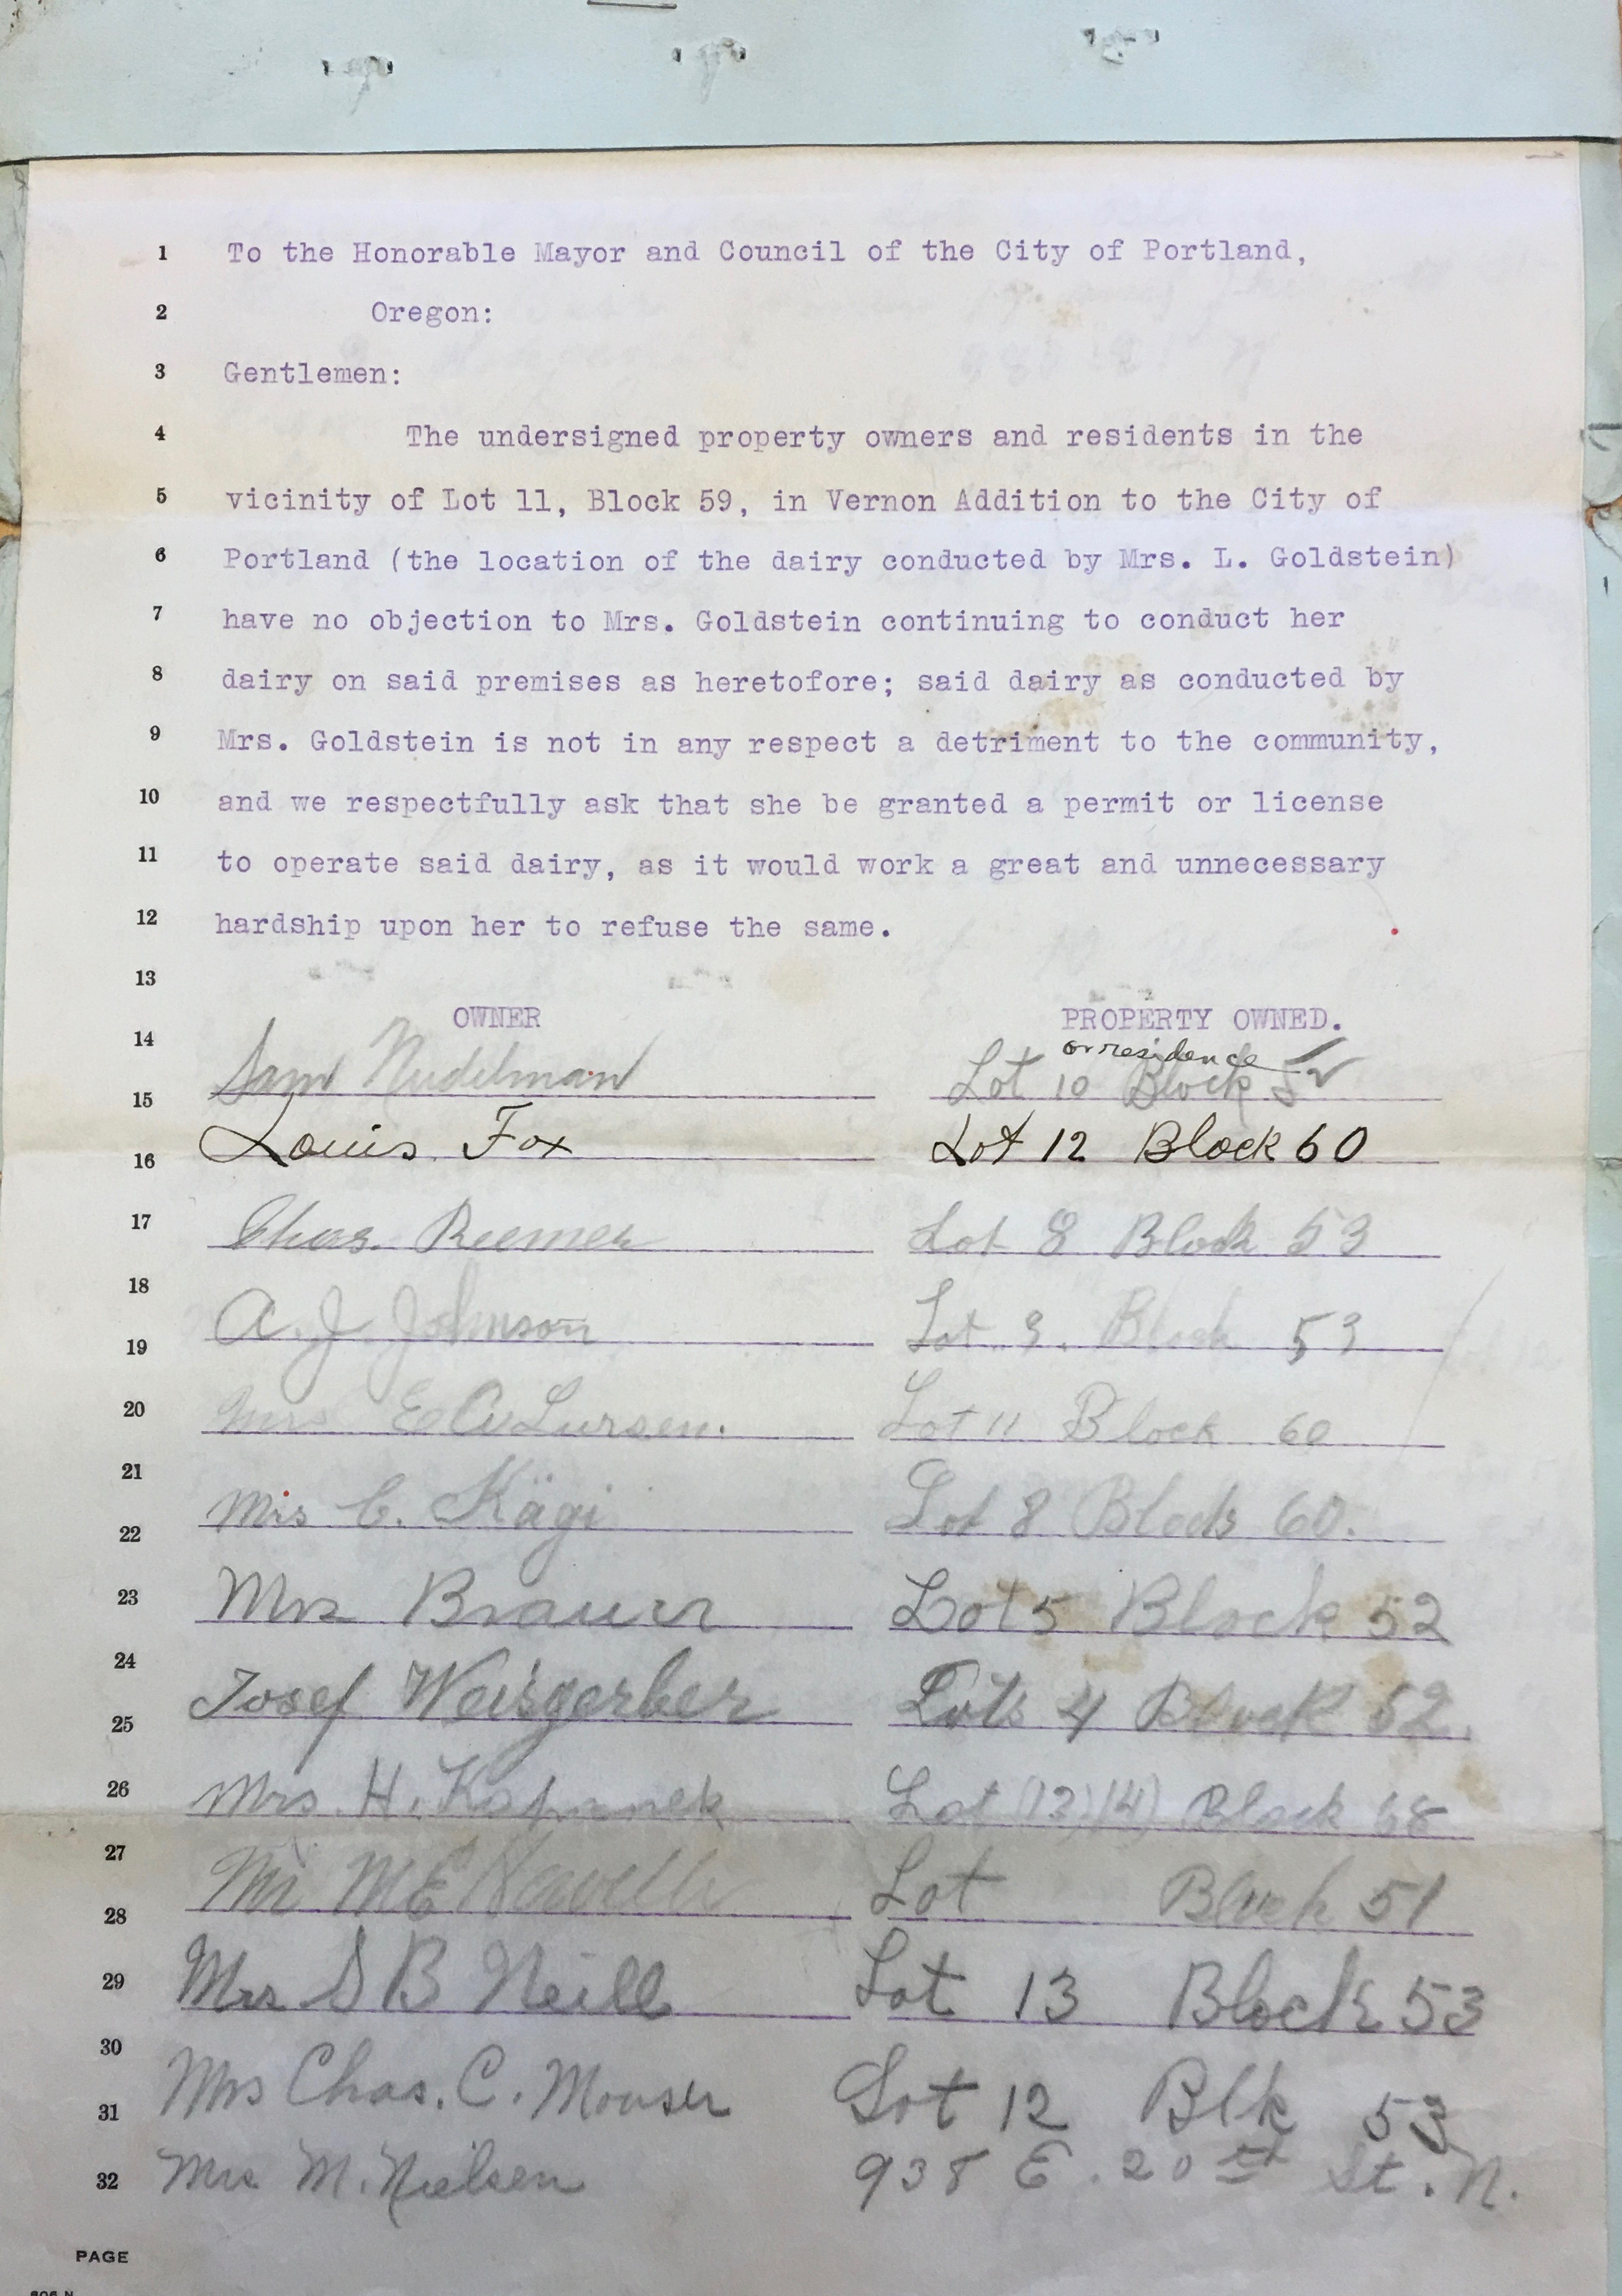 1 To the Honorable Mayor and Council of the City of Portland,
2 Oregon:
3 Gentlemen:
4 The undersigned property owners and residents in the
5 vicinity of Lot 11, Block 59, in Vernon Addition to the City of
6 Portland (the location of the dairy conducted by Mrs. L. Goldstein)
7 have no objection to Mrs. Goldstein continuing to conduct her
8 dairy on said premises as heretofore; said dairy as conducted by
9 Mrs. Goldstein is not in any respect a detriment to the community,
10 and we respectfully ask that she be granted a permit or license
11 to operate said dairy, as it would work a great and unnecessary
12 hardship upon her to refuse the same.
13
OWNER PROPERTY OWNED.
14 or residence
15 Sam Nudelman Lot 10 Block 52
16 Louis Fox Lot 12 Block 60
17 Chas. Riemer Lot 8 Block 53
18
19 A. J. Johnson Lot 9. Block 53
20 Mrs E Lursen. Lot 11 Block 60
21
22 Mrs C. Kägi Lot 8 Block 60.
23 Mrs Brauer Lot 5 Block 52
24
25 Josef Weisgerber Lots 4 Block 52.
26 Mrs. H. Lot (13)(14) Block
27
28 M E Lot Block 51
29 Mrs S B Neill Lot 13 Block 53
30
31 Mrs Chas. C. Mouser Lot 12 Blk 53
32 Mrs M. Nielsen 938 E. 20th St. N.
PAGE